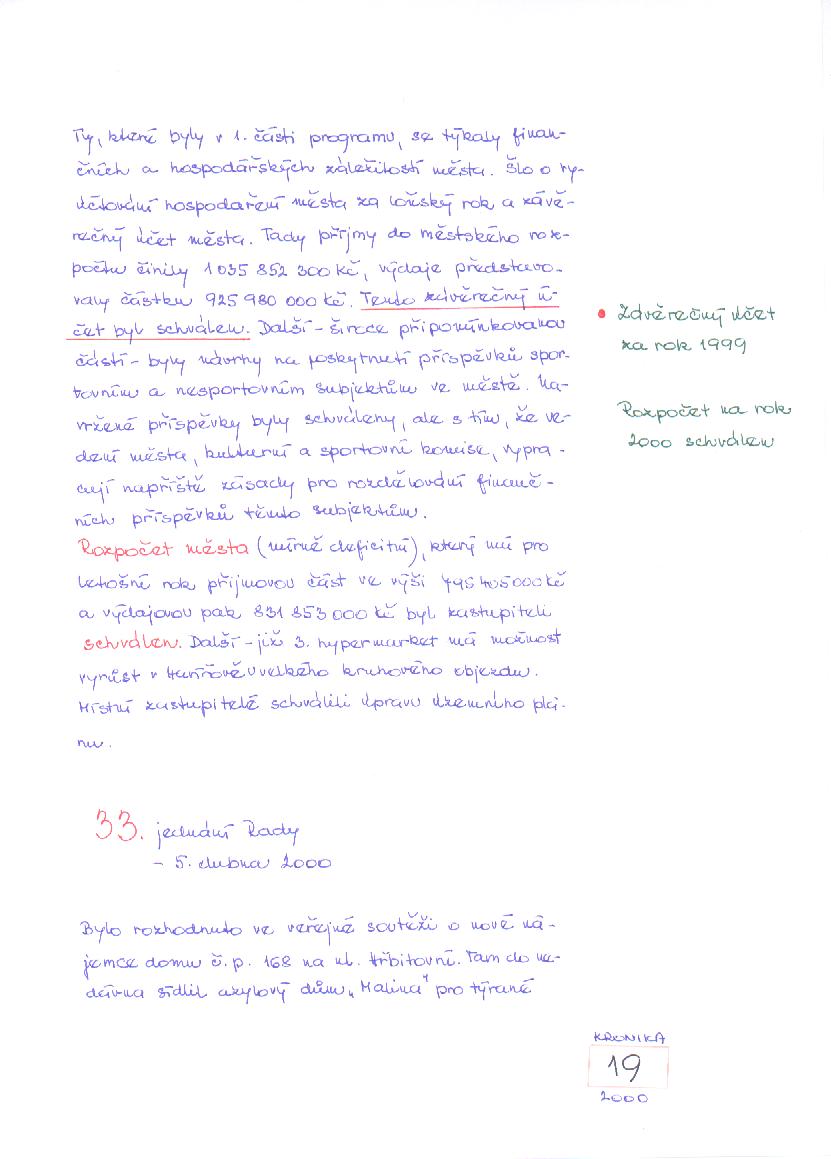 Ty, které byly v 1. části programu, se týkaly finan-
čních a hospodářských záležitostí města. Šlo o vy-
účtování hospodaření města za loňský rok a závě-
rečný účet města. Tady příjmy do městského roz-
počtu činily 1 035 852 300 kč, výdaje představo-
valy částku 925 980 000 kč. Tento závěrečný ú-
čet byl schválen. Další - široce připomínkovanou
částí - byly návrhy na poskytnutí příspěvků spor-
tovním a nesportovním subjektům ve městě. Na-
vržené příspěvky byly schváleny, ale s tím, že ve-
dení města, kulturní a sportovní komise, vypra-
cují napříště zásady pro rozdělování finanč-
ních příspěvků těmto subjektům.
Rozpočet města (mírně deficitní), který má pro
letošní rok příjmovou část ve výši 795 405 000 kč
a výdajovou pak 831 853 000 kč byl zastupiteli
schválen. Další - již 3. hypermarket má možnost
vyrůst v Hunňově u velkého kruhového objezdu.
Místní zastupitelé schválili úpravu územního plá-
nu.
• Závěrečný účet
za rok 1999
Rozpočet na rok
2000 schválen
33. jednání Rady
- 5. dubna 2000
Bylo rozhodnuto ve veřejné soutěži o nové ná-
jemce domu č. p. 168 na ul. Hřbitovní. Tam do ne-
dávna sídlil azylový dům „Malina" pro týrané
KRONIKA
19
2000